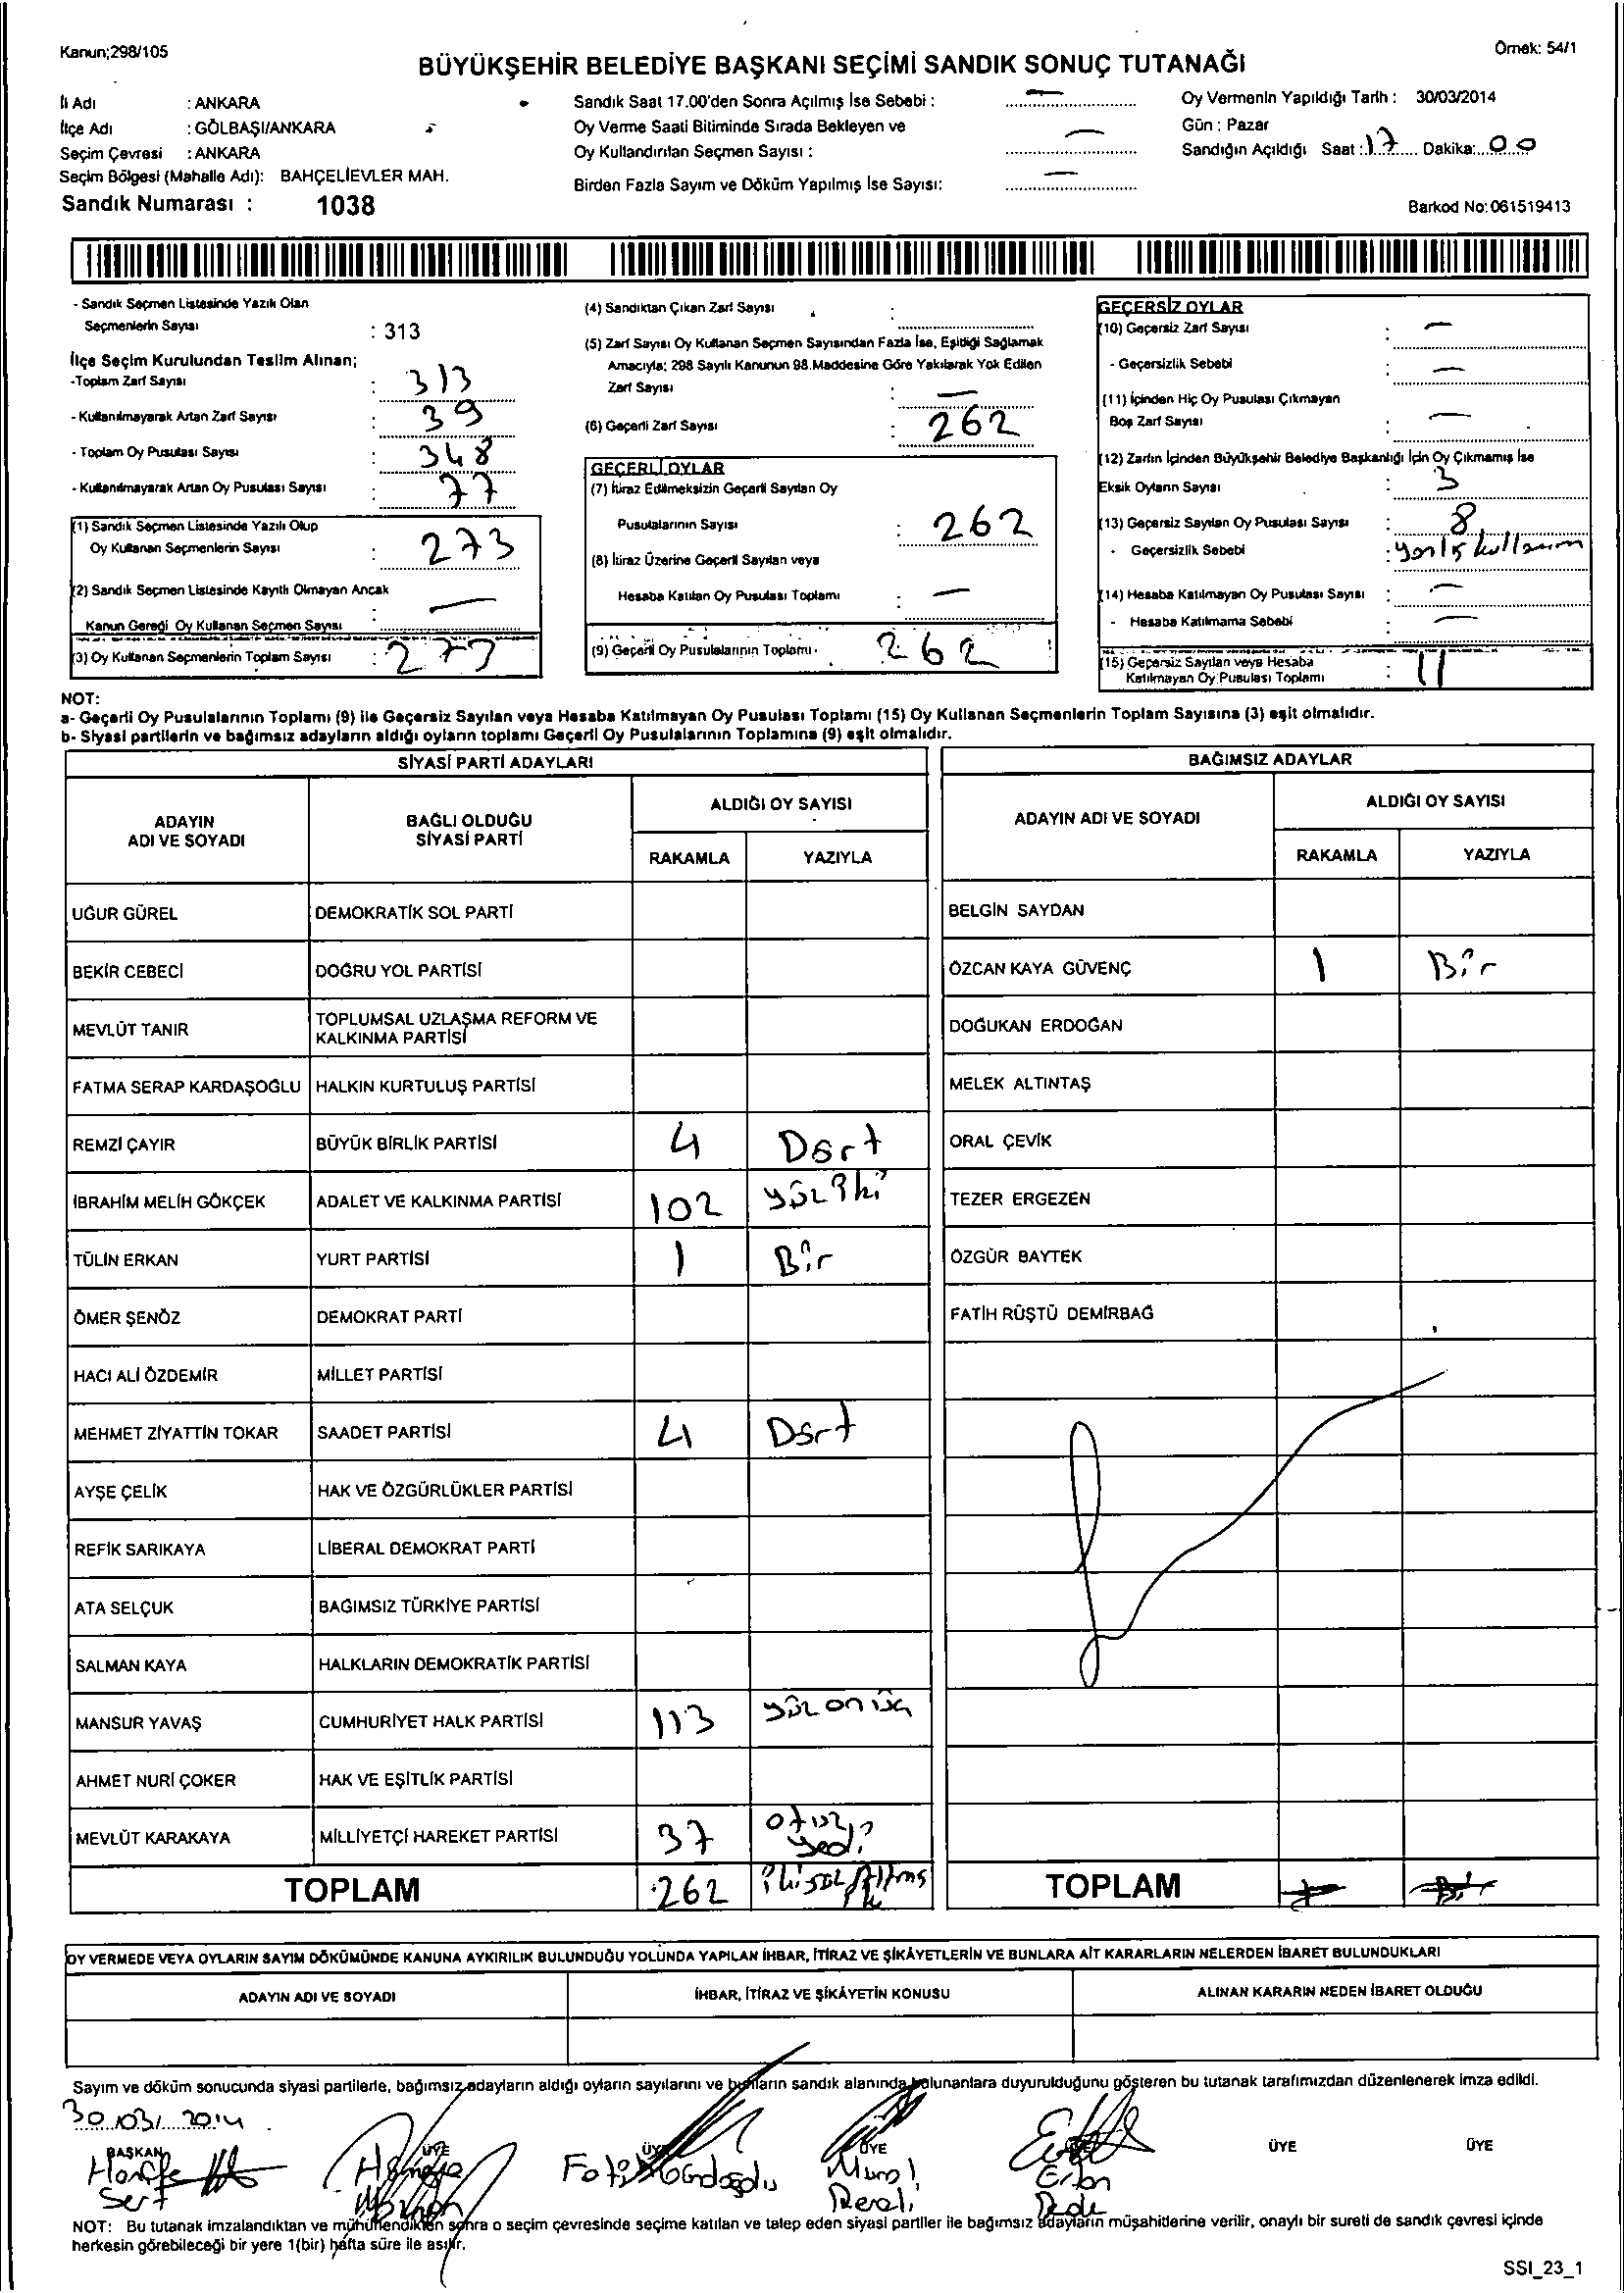 Kanun;298/105
BÜYÜKŞEHİR BELEDİYE BAŞKANI SEÇİMİ SANDIK SONUÇ TUTANAĞI
Örnek: 54/1
İli Adı : ANKARA
İlçe Adı : GÖLBAŞI/ANKARA
Seçim Çevresi : ANKARA
Seçim Bölgesi (Mahalle Adı): BAHÇELİEVLER MAH.
Sandık Numarası : 1038
Sandık Saat 17.00'den Sonra Açılmış İse Sebebi : —
Oy Verme Saati Bitiminde Sırada Bekleyen ve
Oy Kullandırılan Seçmen Sayısı : —
Birden Fazla Sayım ve Döküm Yapılmış İse Sayısı: —
Oy Vermenin Yapıldığı Tarih : 30/03/2014
Gün : Pazar
Sandığın Açıldığı Saat : 17 Dakika: 00
Barkod No: 061519413
- Sandık Seçmen Listesinde Yazılı Olan
Seçmenlerin Sayısı : 313
İlçe Seçim Kurulundan Teslim Alınan;
-Toplam Zarf Sayısı : 313
- Kullanılmayarak Artan Zarf Sayısı : 39
- Toplam Oy Pusulası Sayısı : 348
- Kullanılmayarak Artan Oy Pusulası Sayısı : 77
(1) Sandık Seçmen Listesinde Yazılı Olup
Oy Kullanan Seçmenlerin Sayısı : 273
(2) Sandık Seçmen Listesinde Kayıtlı Olmayan Ancak
Kanun Gereği Oy Kullanan Seçmen Sayısı : —
(3) Oy Kullanan Seçmenlerin Toplam Sayısı : 273
(4) Sandıktan Çıkan Zarf Sayısı :
(5) Zarf Sayısı Oy Kullanan Seçmen Sayısından Fazla İse, Eşitliği Sağlamak
Amacıyla; 298 Sayılı Kanunun 98.Maddesine Göre Yakılarak Yok Edilen
Zarf Sayısı : —
(6) Geçerli Zarf Sayısı : 262
GEÇERLİ OYLAR
(7) İtiraz Edilmeksizin Geçerli Sayılan Oy
Pusulalarının Sayısı : 262
(8) İtiraz Üzerine Geçerli Sayılan veya
Hesaba Katılan Oy Pusulası Toplamı : —
(9) Geçerli Oy Pusulalarının Toplamı : 262
GEÇERSİZ OYLAR
(10) Geçersiz Zarf Sayısı : —
- Geçersizlik Sebebi : —
(11) İçinden Hiç Oy Pusulası Çıkmayan
Boş Zarf Sayısı : —
(12) Zarfın İçinden Büyükşehir Belediye Başkanlığı İçin Oy Çıkmamış İse
Eksik Oyların Sayısı : 3
(13) Geçersiz Sayılan Oy Pusulası Sayısı : 8
- Geçersizlik Sebebi : yanlış kullanım
(14) Hesaba Katılmayan Oy Pusulası Sayısı : —
- Hesaba Katılmama Sebebi : —
(15) Geçersiz Sayılan veya Hesaba
Katılmayan Oy Pusulası Toplamı : 11
NOT:
a- Geçerli Oy Pusulalarının Toplamı (9) ile Geçersiz Sayılan veya Hesaba Katılmayan Oy Pusulası Toplamı (15) Oy Kullanan Seçmenlerin Toplam Sayısına (3) eşit olmalıdır.
b- Siyasi partilerin ve bağımsız adayların aldığı oyların toplamı Geçerli Oy Pusulalarının Toplamına (9) eşit olmalıdır.
SİYASİ PARTİ ADAYLARI
ADAYIN ADI VE SOYADI BAĞLI OLDUĞU SİYASİ PARTİ ALDIĞI OY SAYISI
RAKAMLA YAZIYLA
UĞUR GÜREL DEMOKRATİK SOL PARTİ
BEKİR CEBECİ DOĞRU YOL PARTİSİ
MEVLÜT TANIR TOPLUMSAL UZLAŞMA REFORM VE KALKINMA PARTİSİ
FATMA SERAP KARDAŞOĞLU HALKIN KURTULUŞ PARTİSİ
REMZİ ÇAYIR BÜYÜK BİRLİK PARTİSİ 4 Dört
İBRAHİM MELİH GÖKÇEK ADALET VE KALKINMA PARTİSİ 102 yüz iki
TÜLİN ERKAN YURT PARTİSİ 1 Bir
ÖMER ŞENÖZ DEMOKRAT PARTİ
HACI ALİ ÖZDEMİR MİLLET PARTİSİ
MEHMET ZİYATTİN TOKAR SAADET PARTİSİ 4 Dört
AYŞE ÇELİK HAK VE ÖZGÜRLÜKLER PARTİSİ
REFİK SARIKAYA LİBERAL DEMOKRAT PARTİ
ATA SELÇUK BAĞIMSIZ TÜRKİYE PARTİSİ
SALMAN KAYA HALKLARIN DEMOKRATİK PARTİSİ
MANSUR YAVAŞ CUMHURİYET HALK PARTİSİ 113 yüz on üç
AHMET NURİ ÇOKER HAK VE EŞİTLİK PARTİSİ
MEVLÜT KARAKAYA MİLLİYETÇİ HAREKET PARTİSİ 37 otuz yedi
TOPLAM 262 ikiyüz Altmış
BAĞIMSIZ ADAYLAR
ADAYIN ADI VE SOYADI ALDIĞI OY SAYISI
RAKAMLA YAZIYLA
BELGİN SAYDAN
ÖZCAN KAYA GÜVENÇ 1 Bir
DOĞUKAN ERDOĞAN
MELEK ALTINTAŞ
ORAL ÇEVİK
TEZER ERGEZEN
ÖZGÜR BAYTEK
FATİH RÜŞTÜ DEMİRBAĞ
TOPLAM
OY VERMEDE VEYA OYLARIN SAYIM DÖKÜMÜNDE KANUNA AYKIRILIK BULUNDUĞU YOLUNDA YAPILAN İHBAR, İTİRAZ VE ŞİKÂYETLERİN VE BUNLARA AİT KARARLARIN NELERDEN İBARET BULUNDUKLARI
ADAYIN ADI VE SOYADI İHBAR, İTİRAZ VE ŞİKÂYETİN KONUSU ALINAN KARARIN NEDEN İBARET OLDUĞU
Sayım ve döküm sonucunda siyasi partilerle, bağımsız adayların aldığı oyların sayılarını ve bunların sandık alanında bulunanlara duyurulduğunu gösteren bu tutanak tarafımızdan düzenlenerek imza edildi.
30/03/2014
BAŞKAN ÜYE ÜYE ÜYE ÜYE ÜYE ÜYE
Sert Murat Erkan
NOT: Bu tutanak imzalandıktan ve mühürlendikten sonra o seçim çevresinde seçime katılan ve talep eden siyasi partiler ile bağımsız adayların müşahitlerine verilir, onaylı bir sureti de sandık çevresi içinde
herkesin görebileceği bir yere 1(bir) hafta süre ile asılır.
SSI_23_1